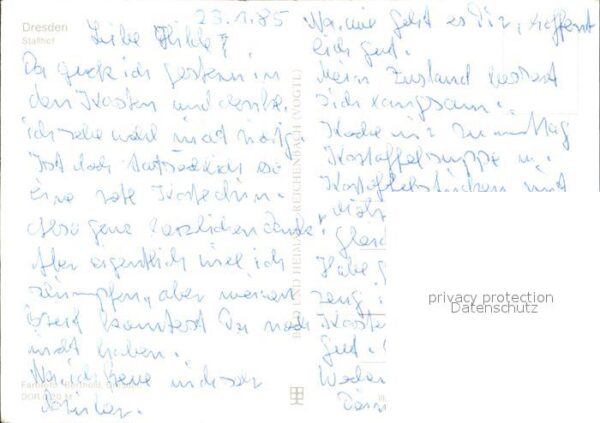 Dresden
Stallhof
23.1.85
Liebe Hilde!
Da guck ich gestern in
den Kasten und denke,
ich sehe wohl nicht richtig
Ist doch tatsächlich so
eine rote Karte drin.
Also ganz herzlichen Dank!
Aber eigentlich will ich
schimpfen, aber meinen
Brief konntest Du noch
nicht haben.
Na, ich freue mich sehr
darüber.
Na, wie geht es Dir, hoffent
lich gut.
Mein Zustand bessert
sich langsam.
Koche mir zu Mittag
Kartoffelsuppe u.
mit
Habe
zeug
gut.
BILD UND HEIMAT REICHENBACH (VOGTL)
privacy protection
Datenschutz